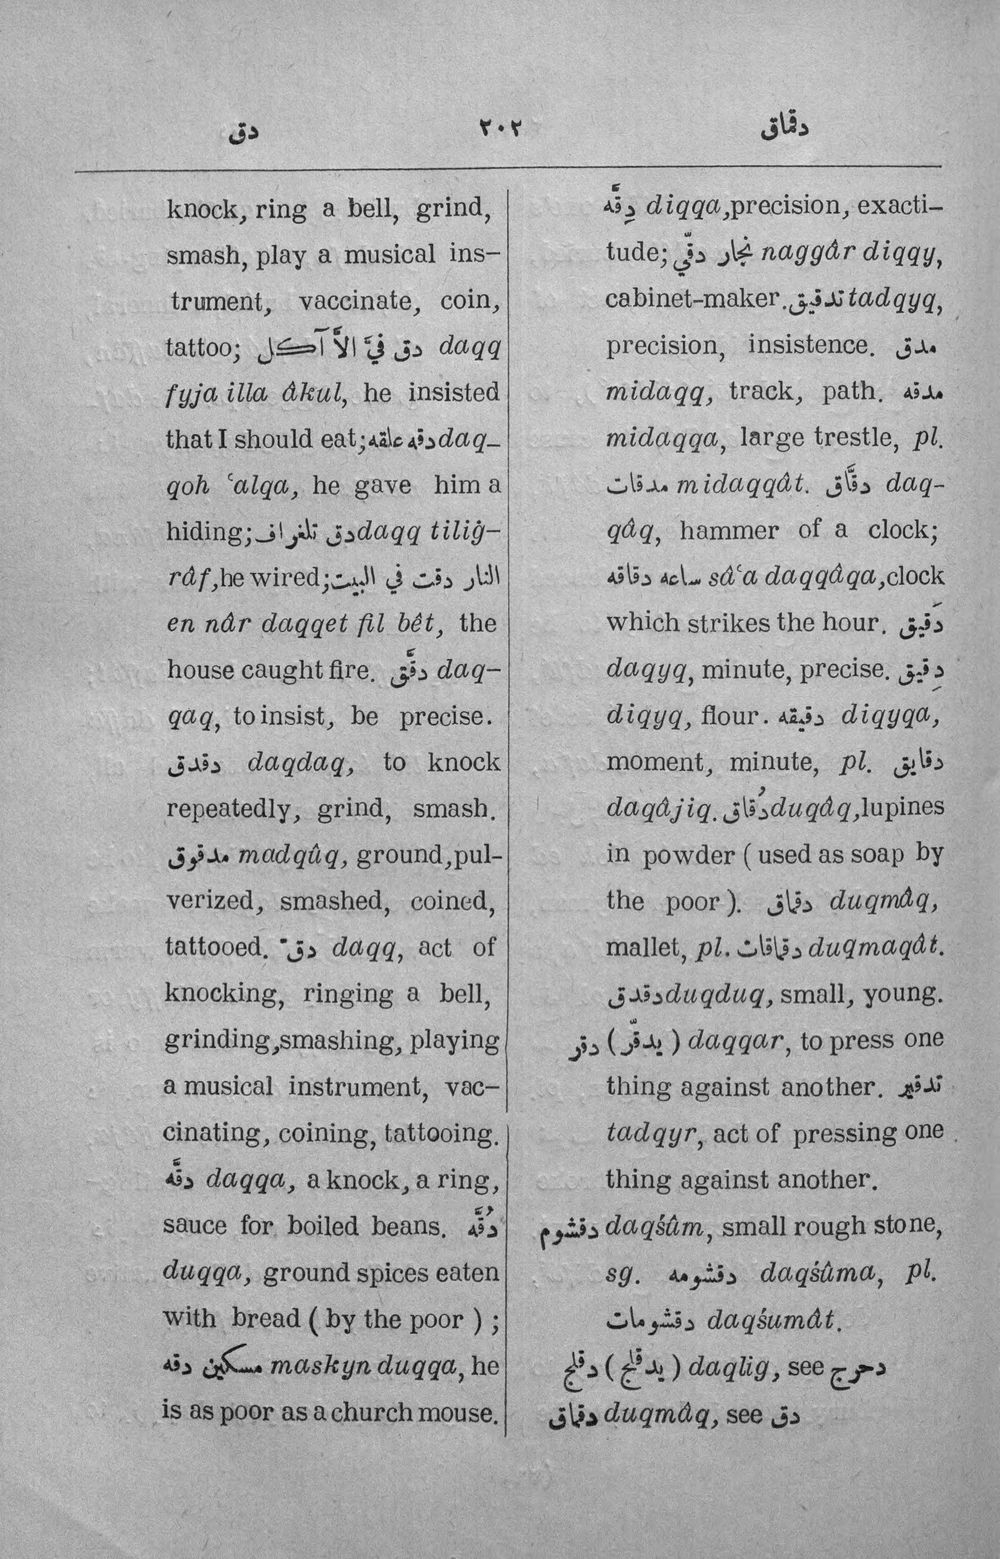 دق ٢٠٢ دقماق
knock, ring a bell, grind,
smash, play a musical ins–
trument, vaccinate, coin,
tattoo; دق فيَّ الاَّ آكل daqq
fyja illa âkul, he insisted
that I should eat; دقه علقه daq–
qoh ʿalqa, he gave him a
hiding; دق تلغراف daqq tiliġ–
râf, he wired; النار دقت في البيت
en nâr daqqet fil bêt, the
house caught fire. دقَّق daq–
qaq, to insist, be precise.
دقدق daqdaq, to knock
repeatedly, grind, smash.
مدقوق madqûq, ground, pul–
verized, smashed, coined,
tattooed. دق daqq, act of
knocking, ringing a bell,
grinding, smashing, playing
a musical instrument, vac–
cinating, coining, tattooing.
دقَّه daqqa, a knock, a ring,
sauce for boiled beans. دُقَّه
duqqa, ground spices eaten
with bread ( by the poor ) ;
مسكين دقه maskyn duqqa, he
is as poor as a church mouse.
دِقَّه diqqa, precision, exacti–
tude; نجار دقّي naggâr diqqy,
cabinet-maker. تدقيق tadqyq,
precision, insistence. مدق
midaqq, track, path. مدقه
midaqqa, large trestle, pl.
مدقات midaqqât. دقَّاق daq–
qâq, hammer of a clock;
ساعه دقاقه sâʿa daqqâqa, clock
which strikes the hour. دَقيق
daqyq, minute, precise. دِقيق
diqyq, flour. دقيقه diqyqa,
moment, minute, pl. دقايق
daqâjiq. دُقاق duqâq, lupines
in powder ( used as soap by
the poor ). دقماق duqmâq,
mallet, pl. دقماقات duqmaqât.
دقدق duqduq, small, young.
دقر ( يدقّر ) daqqar, to press one
thing against another. تدقير
tadqyr, act of pressing one
thing against another.
دقشوم daqśûm, small rough stone,
sg. دقشومه daqśûma, pl.
دقشومات daqśumât.
دقلج ( يدقلج ) daqlig, see دحرج
دقماق duqmâq, see دق